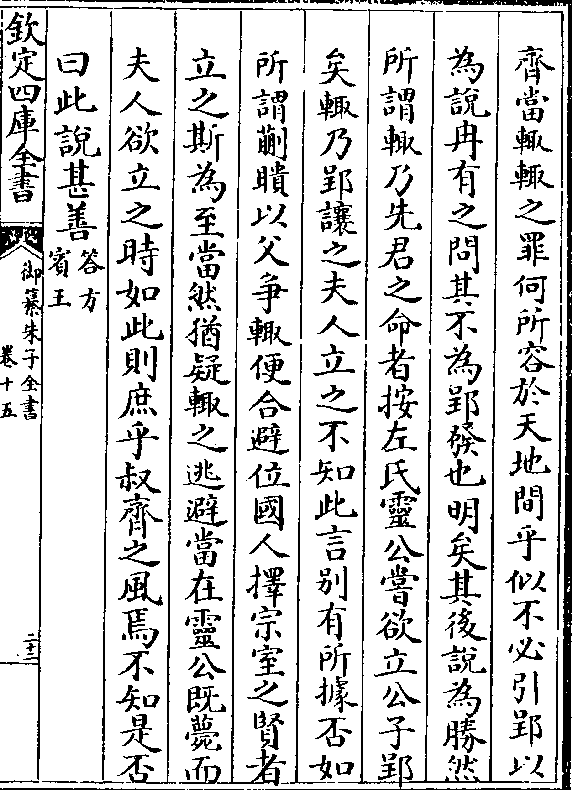 齊當輒輒之罪何所容於天地間乎似不必引郢以
為說冉有之問其不為郢發也明矣其後說為勝然
所謂輒乃先君之命者按左氏靈公嘗欲立公子郢
矣輒乃郢讓之夫人立之不知此言别有所據否如
所謂蒯聵以父争輒便合避位國人擇宗室之賢者
立之斯為至當然猶疑輒之逃避當在靈公既薨而
夫人欲立之時如此則庶乎叔齊之風焉不知是否
曰此說甚善答方賓王
欽定四庫全書
御纂朱子全書
卷十五
二十三